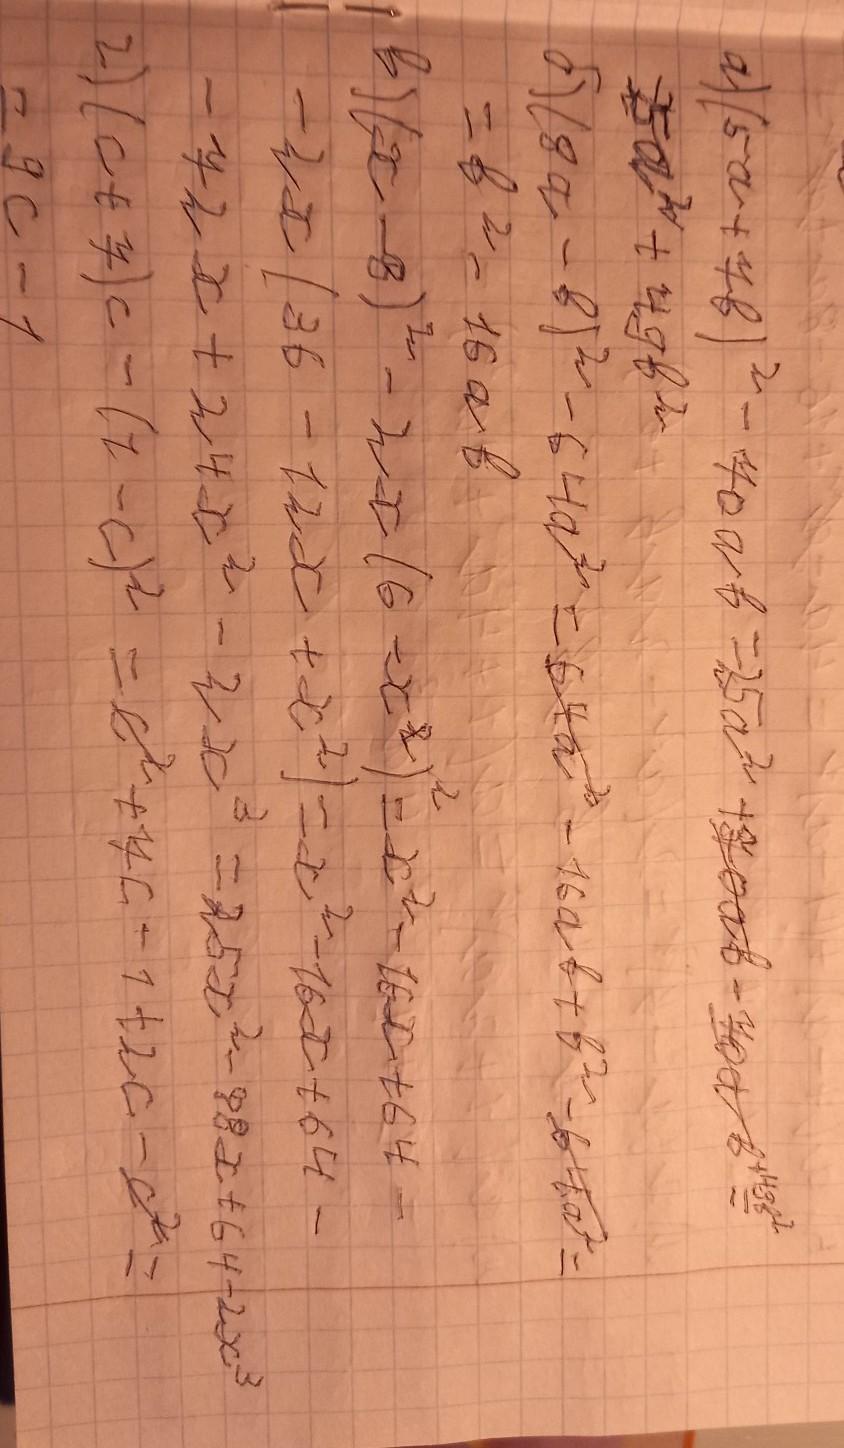 а) (5a + 7b)² - 70ab = 25a² + 70ab - 70ab + 49b² =
25a² + 49b²
б) (8a - b)² - 64a² = 64a² - 16ab + b² - 64a² =
= b² - 16ab
в) (x - 8)² - 2x(6 - x)² = x² - 16x + 64 -
- 2x(36 - 12x + x²) = x² - 16x + 64 -
- 72x + 24x² - 2x³ = 25x² - 88x + 64 - 2x³
г) (c + 7)c - (1 - c)² = c² + 7c - 1 + 2c - c² =
= 9c - 1